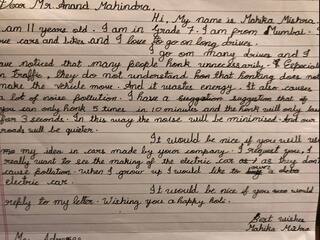 Dear Mr. Anand Mahindra,
Hi, My name is Mahika Mishra
am 11 years old. I am in Grade 7. I am from Mumbai.
ove cars and bikes and I love to go on long drives.
I go on many drives and I
ave noticed that many people honk unnecessarily. Especial
n traffic, they do not understand how that honking does not
make the vehicle move. And it wastes energy. It also causes
a lot of noise pollution. I have a suggestion that if
you can only honk 5 times in 10 minutes and the honk will only las
for 3 seconds. In this way the noise will be minimised. And our
roads will be quieter.
It would be nice if you will us
my idea in cars made by your company. I request you, I
really want to see the making of the electric car as they don't
cause pollution. When I grow up I would like to
electric car.
It would be nice if you
reply to my letter. Wishing you a happy holi.
Best wishes
Mahika Mishra
My